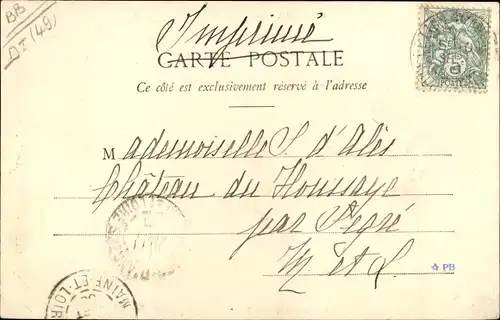 BB
DT (49)
Imprimé
CARTE POSTALE
Ce côté est exclusivement réservé à l'adresse
Mademoiselle S. d'Alès
Château du Houssaye
par Segré
M et L.
☆ PB
MAINE-ET-LOIRE